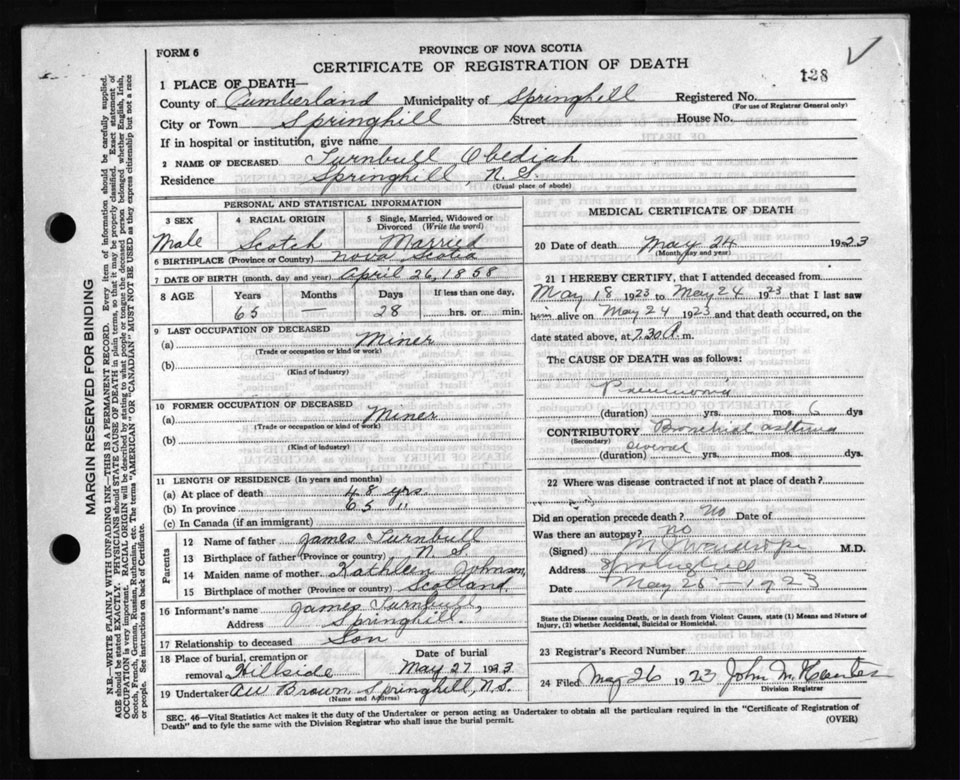 FORM 6
PROVINCE OF NOVA SCOTIA
CERTIFICATE OF REGISTRATION OF DEATH
128
MARGIN RESERVED FOR BINDING
N.B.—WRITE PLAINLY WITH UNFADING INK—THIS IS A PERMANENT RECORD. Every item of information should be carefully supplied.
AGE should be stated EXACTLY. PHYSICIANS should STATE CAUSE OF DEATH in plain terms, so that it may be properly classified. Exact statement of
OCCUPATION is very important. RACIAL ORIGIN will be described by stating to what people or tongue the deceased person belonged whether English, Irish,
Scotch, French, German, Russian, Ruthenian, etc. The terms "AMERICAN" OR "CANADIAN" MUST NOT BE USED as they express citizenship but not a race
or people. See instructions on back of Certificate.
1 PLACE OF DEATH—
County of Cumberland Municipality of Springhill Registered No.
(For use of Registrar General only)
City or Town Springhill Street House No.
If in hospital or institution, give name
2 NAME OF DECEASED Turnbull Obediah
Residence Springhill N.S.
(Usual place of abode)
PERSONAL AND STATISTICAL INFORMATION
3 SEX 4 RACIAL ORIGIN 5 Single, Married, Widowed or
Divorced (Write the word)
Male Scotch Married
6 BIRTHPLACE (Province or Country) Nova Scotia
7 DATE OF BIRTH (month, day and year) April 26, 1858
8 AGE Years Months Days If less than one day,
65 — 28 hrs. or min.
9 LAST OCCUPATION OF DECEASED
(a) Miner
(Trade or occupation or kind or work)
(b)
(Kind of industry)
10 FORMER OCCUPATION OF DECEASED
(a) Miner
(Trade or occupation or kind of work)
(b)
(Kind of industry)
11 LENGTH OF RESIDENCE (In years and months)
(a) At place of death 48 yrs.
(b) In province 65 "
(c) In Canada (if an immigrant)
Parents
12 Name of father James Turnbull
13 Birthplace of father (Province or country) N.S.
14 Maiden name of mother Kathleen Johnson,
15 Birthplace of mother (Province or country) Scotland.
16 Informant's name James Turnbull,
Address Springhill.
17 Relationship to deceased Son
18 Place of burial, cremation or
removal Hillside May 27 1923
19 Undertaker AW Brown, Springhill, N.S.
(Name and Address)
MEDICAL CERTIFICATE OF DEATH
20 Date of death May 24 1923
(Month, day and year)
21 I HEREBY CERTIFY, that I attended deceased from
May 18 1923 to May 24 1923 that I last saw
him alive on May 24 1923 and that death occurred, on
date stated above, at 7.30 A. m.
The CAUSE OF DEATH was as follows:
Pneumonia
(duration) yrs. mos. 6 dys
CONTRIBUTORY Bronchial asthma
(Secondary) several
(duration) yrs. mos. dys
22 Where was disease contracted if not at place of death?
Did an operation precede death? no Date of
Was there an autopsy? no
(Signed) M.D.
Address Springhill
Date May 25—1923
State the Disease causing Death, or in death from Violent Causes, state (1) Means and Nature of
Injury, (2) whether Accidental, Suicidal or Homicidal.
23 Registrar's Record Number
24 Filed May 26 1923 John M.
Division Registrar
SEC. 46—Vital Statistics Act makes it the duty of the Undertaker or person acting as Undertaker to obtain all the particulars required in the "Certificate of Registration of
Death" and to fyle the same with the Division Registrar who shall issue the burial permit.
(OVER)